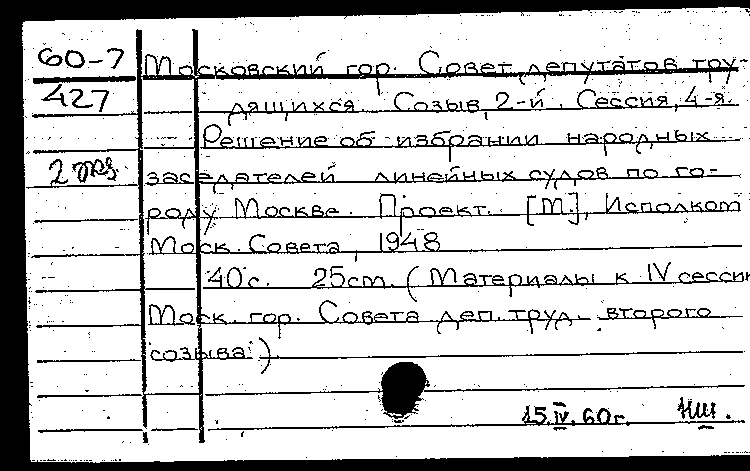 60-7 Московский гор. Совет депутатов тру-
427 дящихся. Созыв, 2-й. Сессия, 4-я.
Решение об избрании народных
2 экз заседателей линейных судов по го-
роду Москве. Проект. [М.], Исполком
Моск. Совета, 1948
40с. 25см. (Материалы к IV сессии
Моск. гор. Совета деп. труд. второго
созыва).
15.IV.60г.